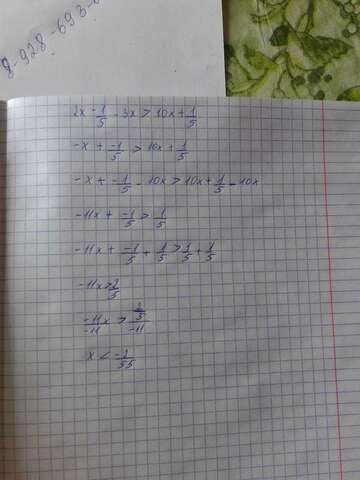 8-928-693-6
2x - 1/5 - 3x > 10x + 1/5
-x + -1/5 > 10x + 1/5
-x + -1/5 - 10x > 10x + 1/5 - 10x
-11x + -1/5 > 1/5
-11x + -1/5 + 1/5 > 1/5 + 1/5
-11x > 2/5
-11x/-11 > 2/5/-11
x < -2/55